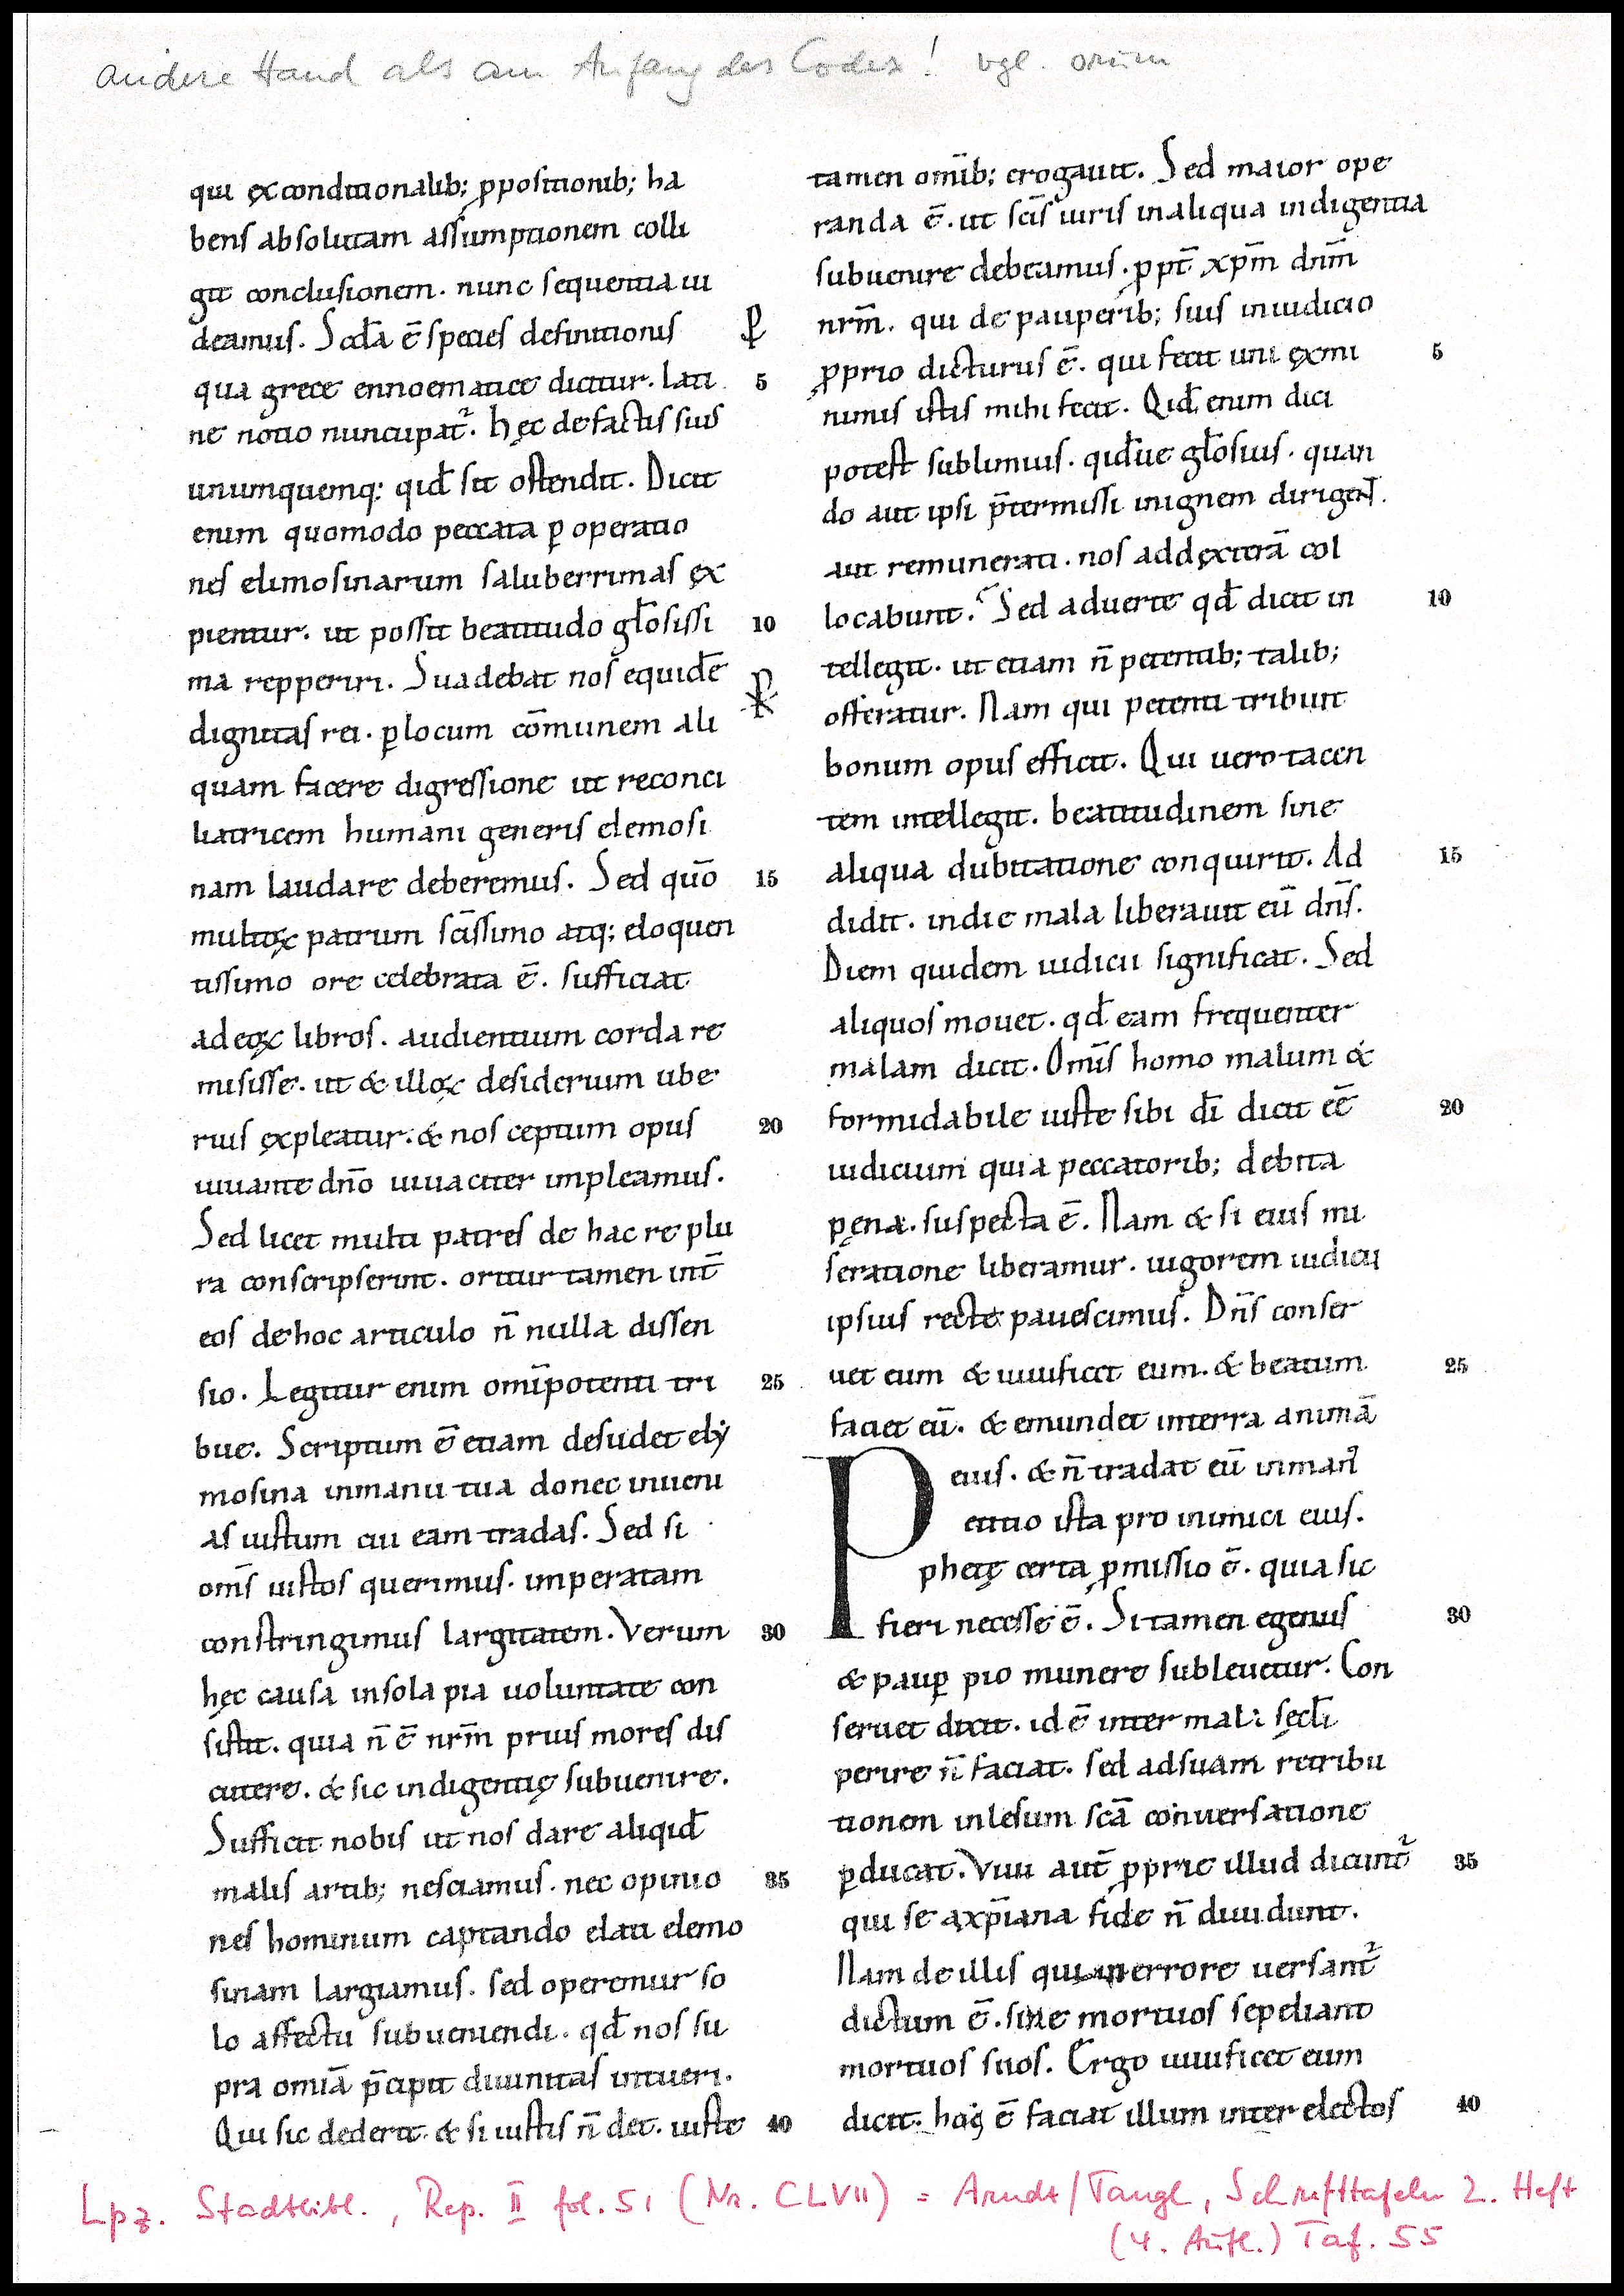 andere Hand als am Anfang des Codex! vgl. orum
qui ęxconditionalib; ꝓpositionib; ha
bens absolutam assumptionem colli
git conclusionem. nunc sequentia ui
deamus. Scđa ē species definitionis
qua grece ennoematice dicitur. lati 5
ne notio nuncupat᷑. hęc defactis suis
unumquemq: qid̄ sit ostendit. Dicit
enim quomodo peccata ꝑ operatio
nes elimosinarum saluberrimas ęx
pientur. ut possit beatitudo gl̄osissi 10
ma repperiri. Suadebat nos equidē
dignitas rei. ꝑlocum cōmunem ali
quam facere digressione ut reconci
liatricem humani generis elemosi
nam laudare deberemus. Sed quō 15
multoꝝ patrum scīssimo atq; eloquen
tissimo ore celebrata ē. sufficiat
adeoꝝ libros. audientium corda re
misisse. ut & illoꝝ desiderium ube
rius ęxpleatur. & nos ceptum opus 20
iuuante dn̄o uiuaciter impleamus.
Sed licet multi patres de hac re plu
ra conscripserint. oritur tamen int̄
eos dehoc articulo n̄ nulla dissen
sio. Legitur enim omīpotenti tri 25
bue. Scriptum ē etiam desudet elẏ
mosina inmanu tua donec inueni
as iustum cui eam tradas. Sed si
omīs iustos querimus. imperatam
constringimus largitatem. Verum 30
hęc causa insola pia uoluntate con
sistit. quia n̄ ē nrm̄ prius mores dis
cutere. & sic indigentię subuenire.
Sufficit nobis ut nos dare aliqid̄
malis artib; nesciamus. nec opinio 35
nes hominum captando elati elemo
sinam largiamus. sed operemur so
lo affectu subueniendi. qd̄ nos su
pra omīa p̄cipit diuinitas intueri.
Qui sic dederit. & si iustis n̄ det. iuste 40
tamen omīb; erogauit. Sed maior ope
randa ē. ut scīs uiris inaliqua indigentia
subuenire debeamus. ꝓpt̄ xpm̄ dnm̄
nrm̄. qui de pauperib; suis iniudicio
ꝓprio dicturus ē. qui fecit uni ęxmi 5
nimis istis mihi fecit. Qid̄ enim dici
potest sublimius. qid̄ue gl̄osius. quan
do aut ipsi p̄termissi inignem dirigent.
aut remunerati. nos addęxterā col
locabunt. Sed aduerte qd̄ dicit in 10
tellegit. ut etiam n̄ petentib; talib;
offeratur. Nam qui petenti tribuit
bonum opus efficit. Qui uero tacen
tem intellegit. beatitudinem sine
aliqua dubitatione conquirit. Ad 15
didit. indie mala liberauit eū dn̄s.
Diem quidem iudicii significat. Sed
aliquos mouet. qd̄ eam frequenter
malam dicit. Omīs homo malum &
formidabile iuste sibi dī dicit eē 20
iudicium quia peccatorib; debita
pena. suspecta ē. Nam & si eius mi
seratione liberamur. uigorem iudicii
ipsius recte pauescimus. Dn̄s conser
uet eum & uiuificet eum. & beatum 25
faciet eū. & emundet interra animā
eius. & n̄ tradat eū inman᷑
P etitio ista pro inimici eius.
phetę certa ꝓmissio ē. quia sic
fieri necesse ē. Si tamen egenus 30
& pauꝑ pio munere subleuetur. Con
seruet dicit. id ē inter mala sęcl̄i
perire n̄ faciat. sed adsuam retribu
tionem inlesum scā conuersatione
ꝑducat. Viui aut̄ ꝓprie illud dicunt᷑ 35
qui se axp̄iana fide n̄ diuidunt.
Nam de illis qui inerrore uersant᷑
dictum ē. sine mortuos sepeliant
mortuos suos. Ergo uiuificet eum
dicit. ē faciat illum inter electos 40
Lpz. Stadtbibl., Rep. II fol. 51 (Nr. CLVII) = Arndt/Tangl, Schrifttafeln 2. Heft
(4. Aufl.) Taf. 55